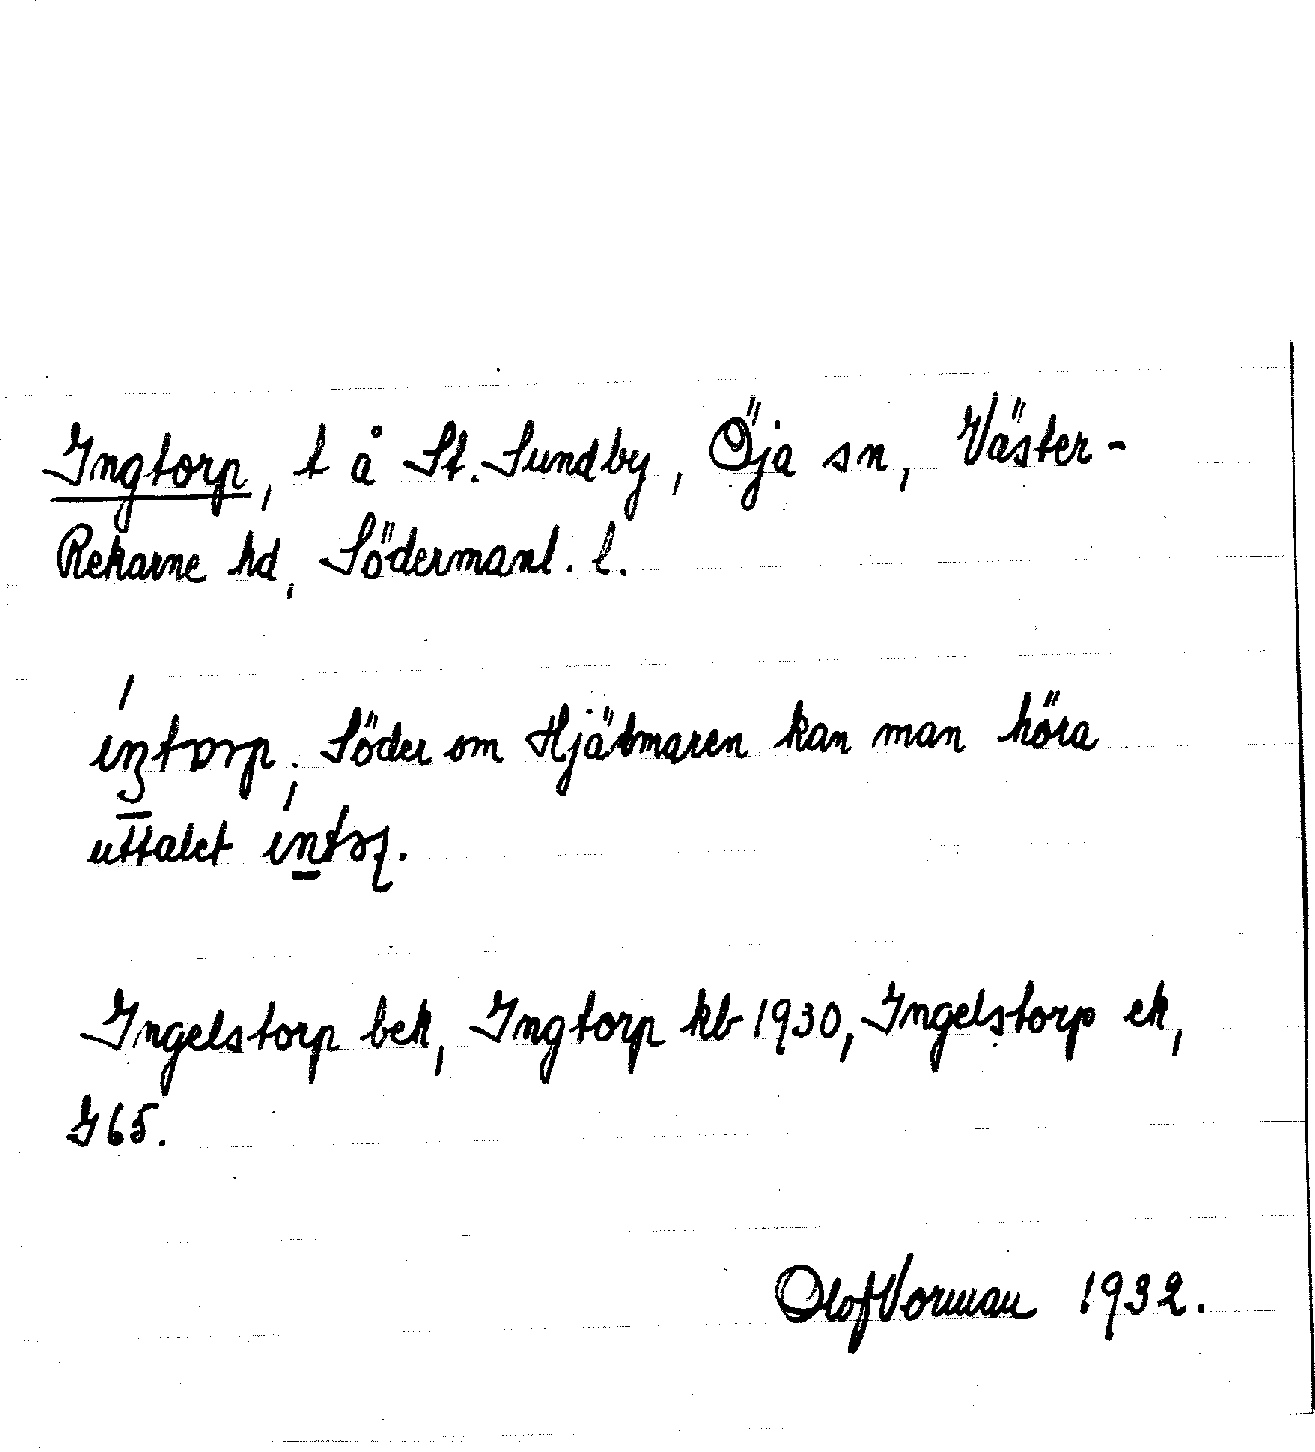 Ingtorp, t å St. Sundby, Öja sn, Väster-
Rekarne hd, Södermanl. l.
Söder om Hjälmaren kan man höra
uttalet
Ingelstorp bek, Ingtorp kb 1930, Ingelstorp ek,
J 65.
Olof Vorman 1932.